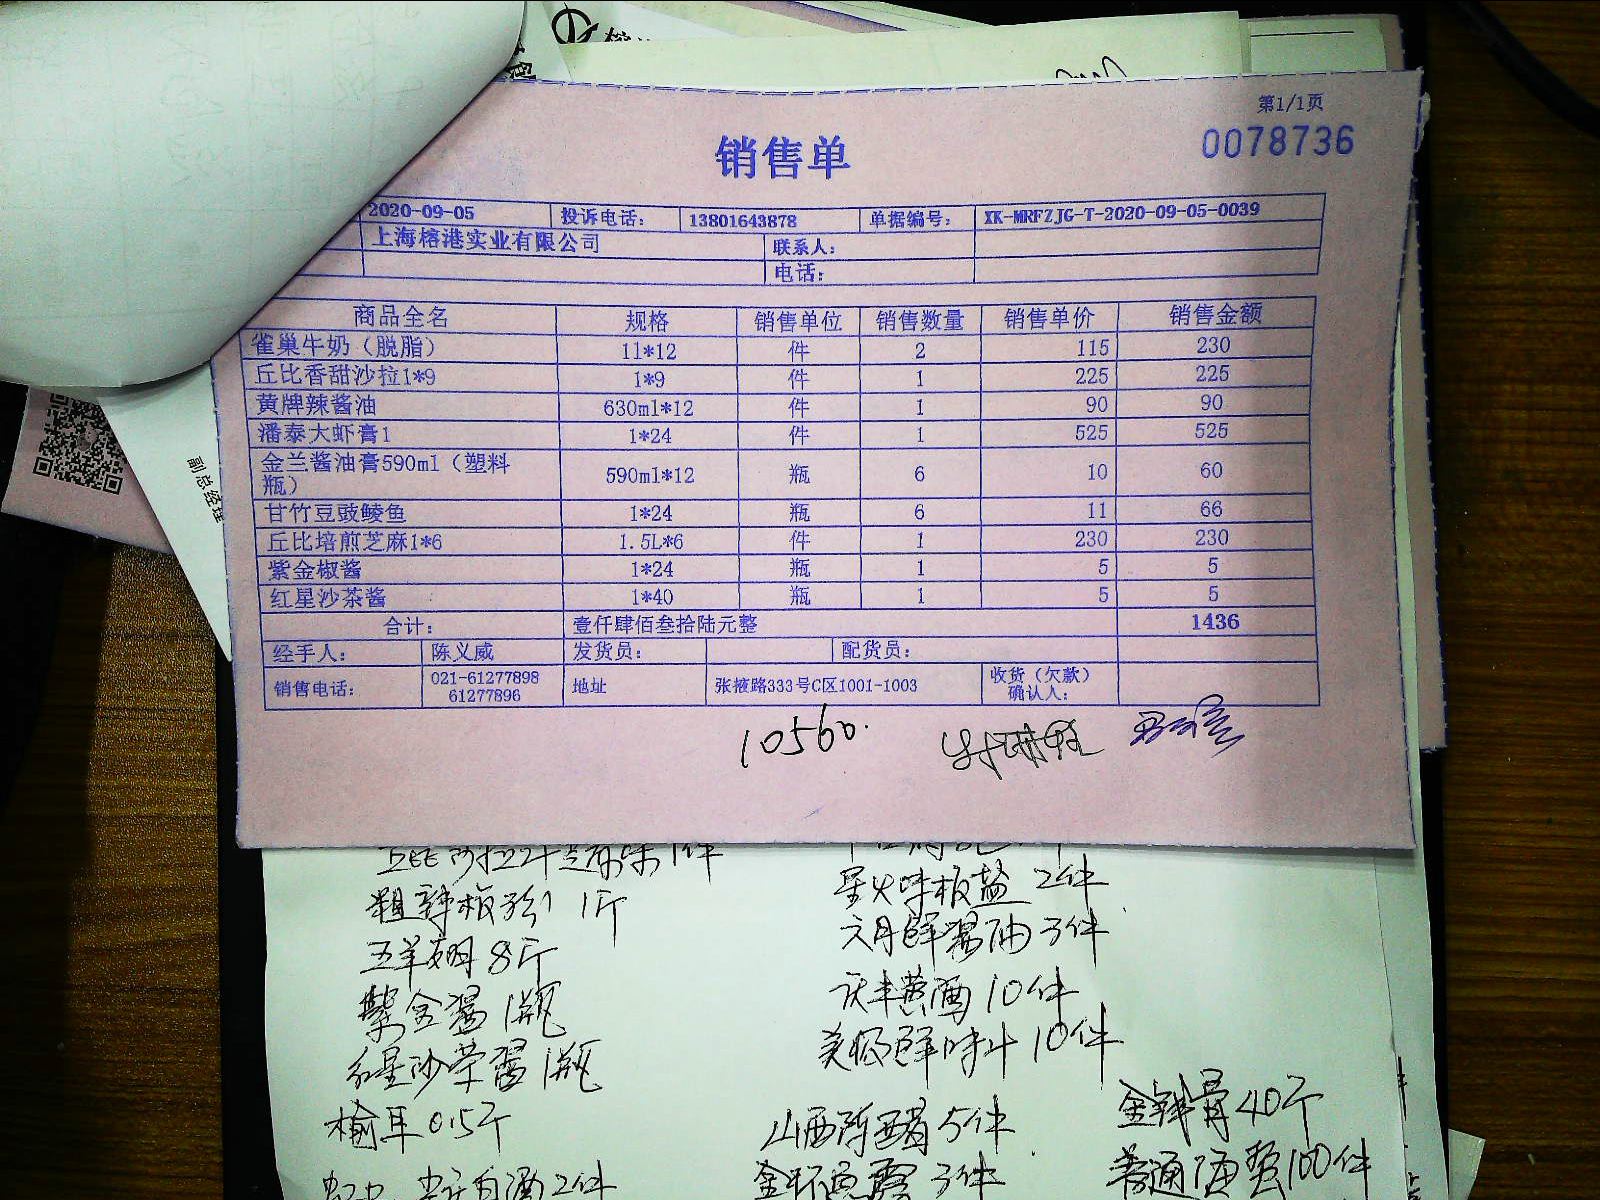 第1/1页
0078736
销售单
2020-09-05 投诉电话: 13801643878 单据编号: XK-MRFZJG-T-2020-09-05-0039
上海榕港实业有限公司 联系人:
电话:
商品全名 规格 销售单位 销售数量 销售单价 销售金额
雀巢牛奶（脱脂） 1l*12 件 2 115 230
丘比香甜沙拉1*9 1*9 件 1 225 225
黄牌辣酱油 630ml*12 件 1 90 90
潘泰大虾膏1 1*24 件 1 525 525
金兰酱油膏590ml（塑料
瓶） 590ml*12 瓶 6 10 60
甘竹豆豉鲮鱼 1*24 瓶 6 11 66
丘比培煎芝麻1*6 1.5L*6 件 1 230 230
紫金椒酱 1*24 瓶 1 5 5
红星沙茶酱 1*40 瓶 1 5 5
合计: 壹仟肆佰叁拾陆元整 1436
经手人: 陈义威 发货员: 配货员:
销售电话: 021-61277898 地址 张掖路333号C区1001-1003 收货（欠款）
61277896 确认人:
10560.
副总经理
粗辣椒粉 1斤
星火味极盐 2件
六月鲜酱油 3件
五羊 8斤
紫金酱 1瓶
庆丰黄酒 10件
红星沙茶酱 1瓶
美极鲜味汁 10件
榆耳 0.5斤
山西陈醋 5件
金钱骨 40斤
白酒 2件
3件
普通 100件